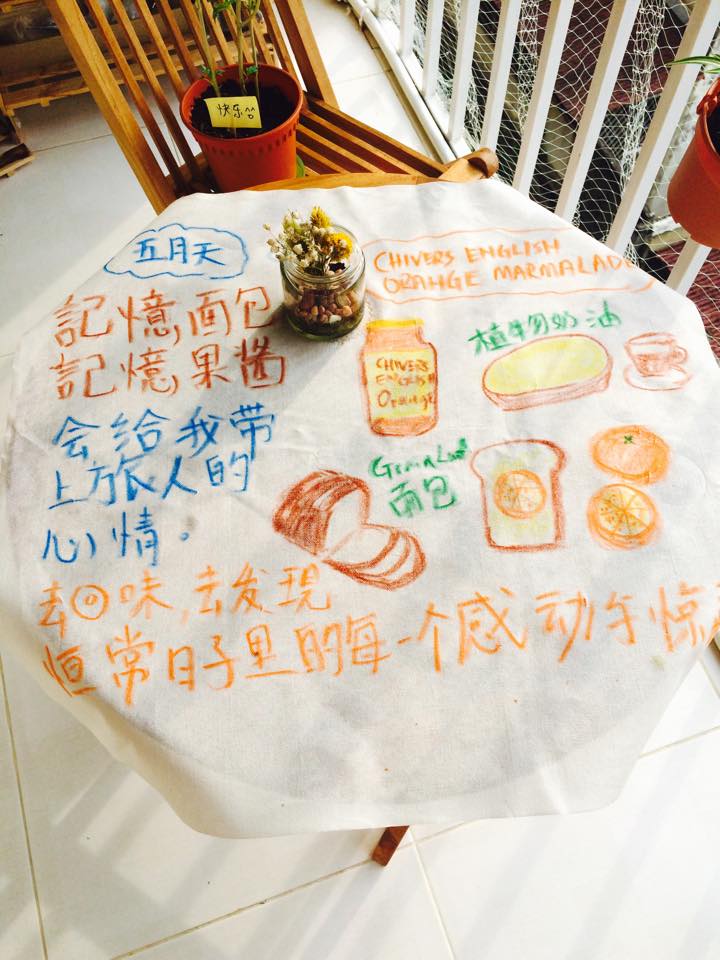 快乐
五月天
CHIVERS ENGLISH
ORANGE MARMALADE
記憶,面包
記憶,果酱
会给我带
上旅人的
心情。
CHIVERS
ENGLISH
Orange
植物奶油
面包
去回味,去发現
恒常日子里的每一个感动与惊